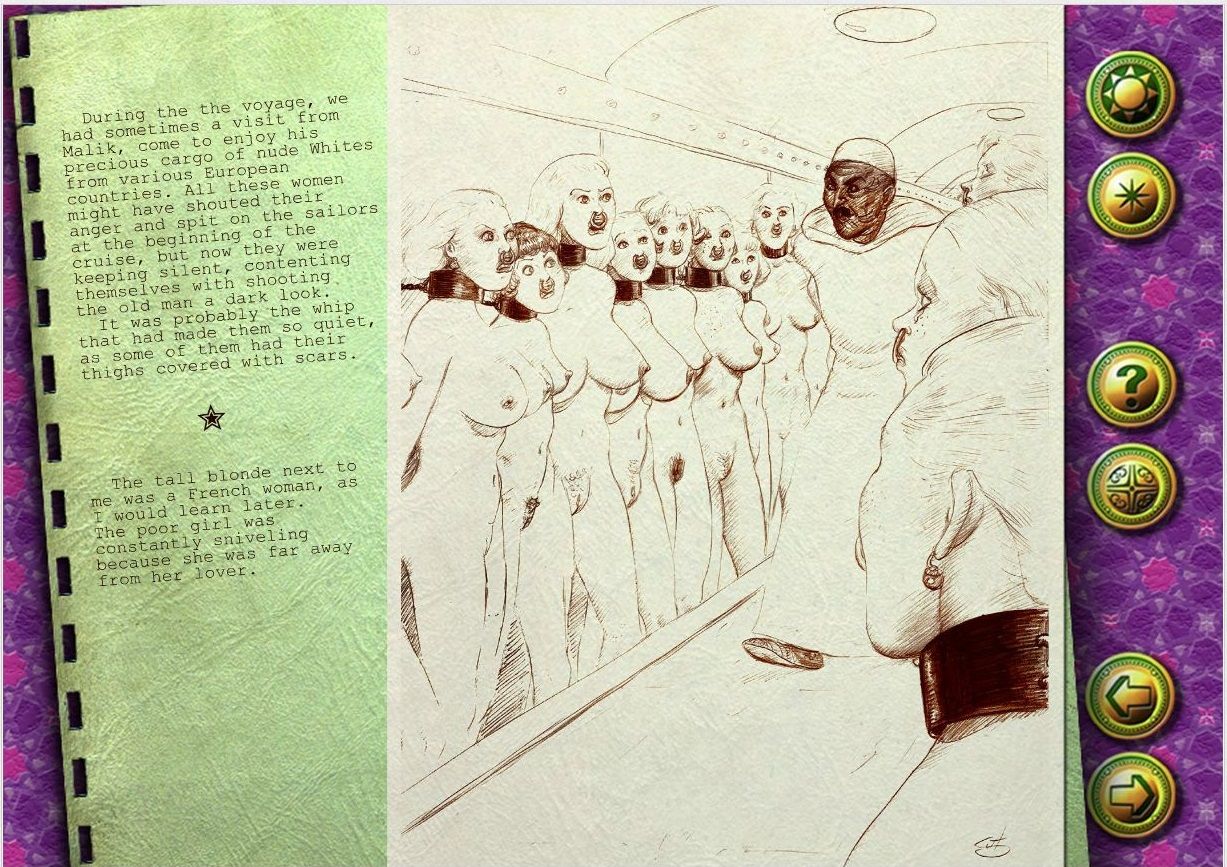 During the the voyage, we
had sometimes a visit from
Malik, come to enjoy his
precious cargo of nude Whites
from various European
countries. All these women
might have shouted their
anger and spit on the sailors
at the beginning of the
cruise, but now they were
keeping silent, contenting
themselves with shooting
the old man a dark look.
It was probably the whip
that had made them so quiet,
as some of them had their
thighs covered with scars.
The tall blonde next to
me was a French woman, as
I would learn later.
The poor girl was
constantly sniveling
because she was far away
from her lover.
?